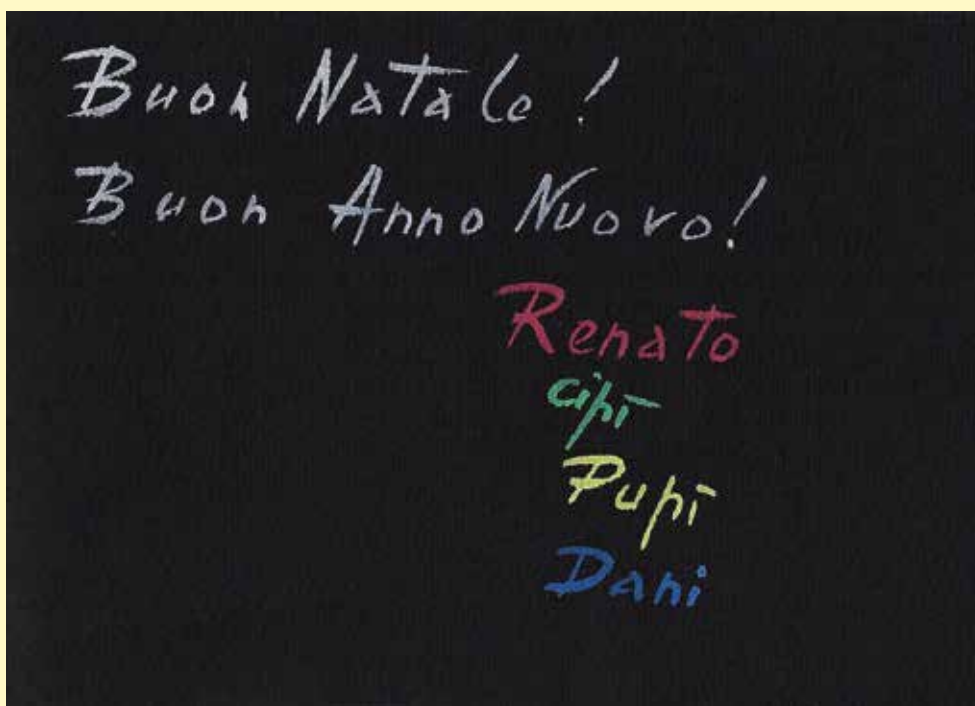 Buon Natale!
Buon Anno Nuovo!
Renato
Cipì
Pupi
Dani